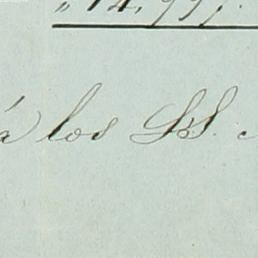 " 14,997.
á los SS.